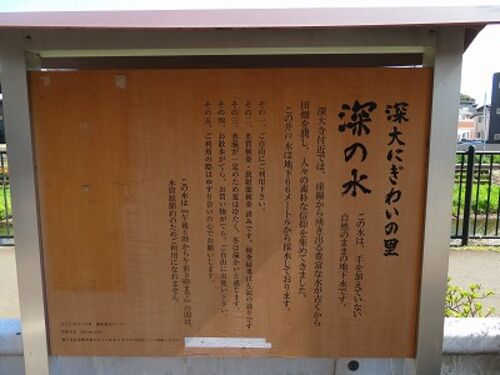 深大にぎわいの里
深の水
この水は、手を加えていない
自然のままの地下水です。
深大寺付近では、崖線から湧き出る豊富な水が古くから
田畑を潤し、人々の素朴な信仰を集めてきました。
この井戸水は地下66メートルから採水しております。
その一、ご自由にご利用下さい。
その二、水質検査・放射能検査済みです。検査結果は左記の通りです
その三、水温が一定のため夏は冷たく、冬は温かいと感じます。
その四、お散歩がてら、お買い物がてら、ご自由にお使い下さい。
その五、ご利用の際はゆずり合いの心でお願いします。
この水は『午後6時から午前9時まで』の間は、
水資源節約のためご利用になれません。